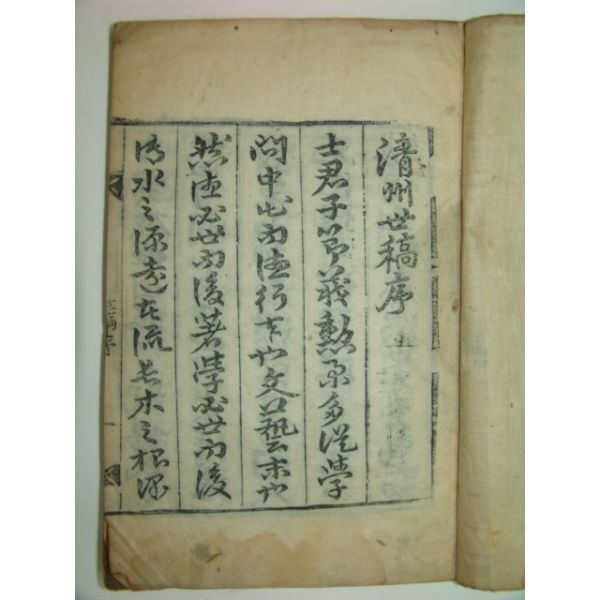 清州世稿序
士君子節義勳烈多從學
問中出而德行本也文藝末也
然德必世而後著學必世而後
博水之源遠者流長木之根深
世稿序 一